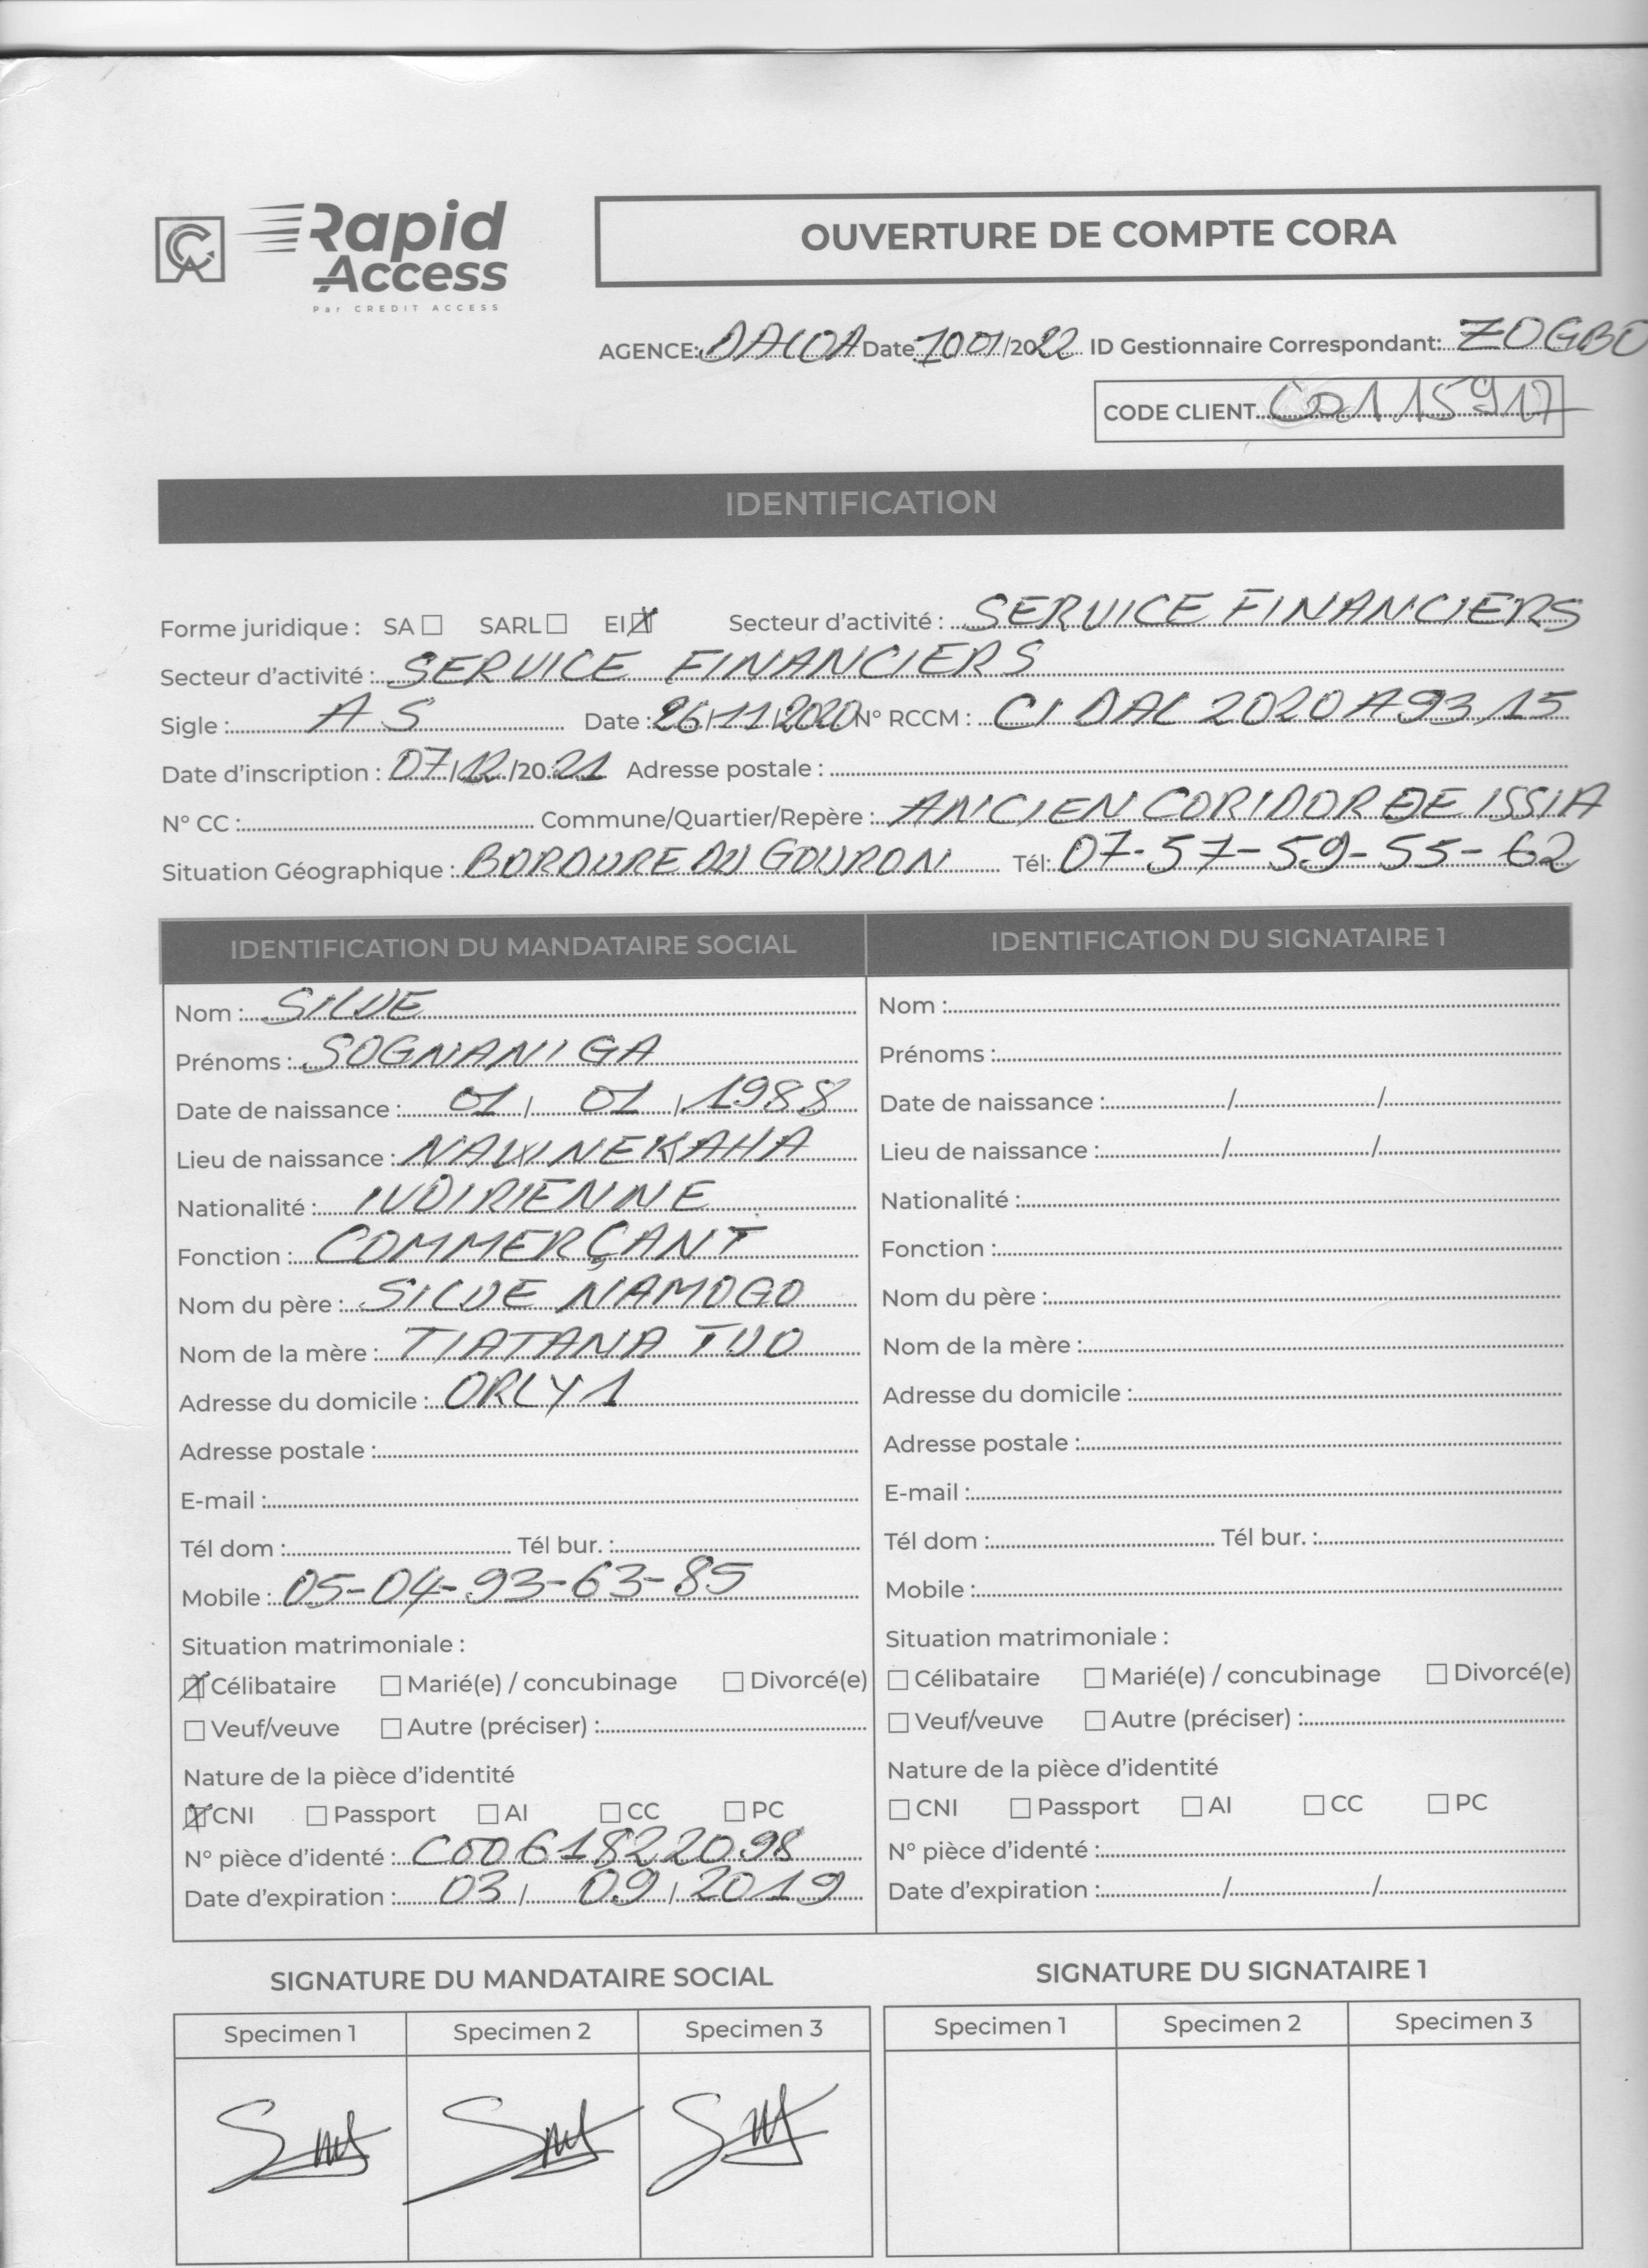 CA Rapid Access
Par CREDIT ACCESS
OUVERTURE DE COMPTE CORA
AGENCE: DALOA Date 10/01/2022 ID Gestionnaire Correspondant: ZOGBO
CODE CLIENT C0115917
IDENTIFICATION
Forme juridique : SA ☐ SARL ☐ EI ☒ Secteur d'activité : SERVICE FINANCIERS
Secteur d'activité : SERVICE FINANCIERS
Sigle : A S Date : 26/11/2020 N° RCCM : CI DAL 2020 A 93 15
Date d'inscription : 07/12/2021 Adresse postale :
N° CC : Commune/Quartier/Repère : ANCIEN CORIDOR DE ISSIA
Situation Géographique : BORDURE DU GOURON Tél: 07-57-59-55-62
IDENTIFICATION DU MANDATAIRE SOCIAL
Nom : SILUE
Prénoms : SOGNANIGA
Date de naissance : 01 / 01 / 1988
Lieu de naissance : NAWINEKAHA
Nationalité : IVOIRIENNE
Fonction : COMMERÇANT
Nom du père : SILUE NAMOGO
Nom de la mère : TIATANA TUO
Adresse du domicile : ORLY 1
Adresse postale :
E-mail :
Tél dom : Tél bur. :
Mobile : 05-04-93-63-85
Situation matrimoniale :
☒ Célibataire ☐ Marié(e) / concubinage ☐ Divorcé(e)
☐ Veuf/veuve ☐ Autre (préciser) :
Nature de la pièce d'identité
☒ CNI ☐ Passport ☐ AI ☐ CC ☐ PC
N° pièce d'identé : C00 61822098
Date d'expiration : 03 / 09 / 2019
IDENTIFICATION DU SIGNATAIRE 1
Nom :
Prénoms :
Date de naissance : / /
Lieu de naissance : / /
Nationalité :
Fonction :
Nom du père :
Nom de la mère :
Adresse du domicile :
Adresse postale :
E-mail :
Tél dom : Tél bur. :
Mobile :
Situation matrimoniale :
☐ Célibataire ☐ Marié(e) / concubinage ☐ Divorcé(e)
☐ Veuf/veuve ☐ Autre (préciser) :
Nature de la pièce d'identité
☐ CNI ☐ Passport ☐ AI ☐ CC ☐ PC
N° pièce d'identé :
Date d'expiration : / /
SIGNATURE DU MANDATAIRE SOCIAL
Specimen 1 Specimen 2 Specimen 3
SIGNATURE DU SIGNATAIRE 1
Specimen 1 Specimen 2 Specimen 3